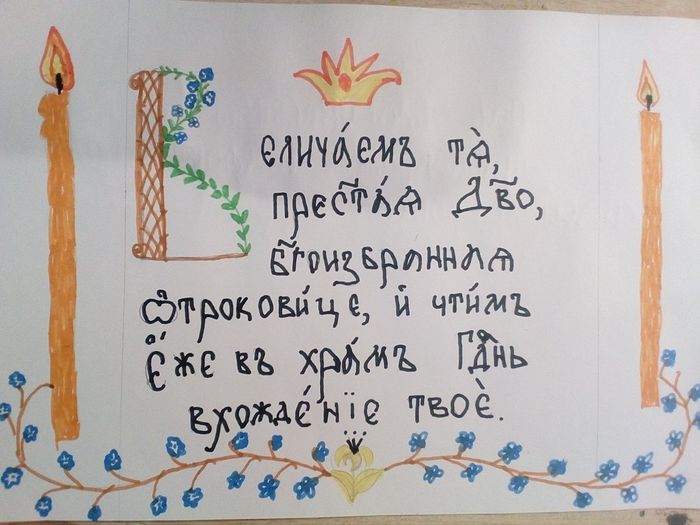 Величáемъ тѧ̀,
прес҃тáѧ Дв҃о,
бг҃оизбраннаѧ
ѿтрокови́це, и҆ чти́мъ
є҆́же въ хрáмъ Гдⷭ҇нь
вхождéнїе твоѐ.